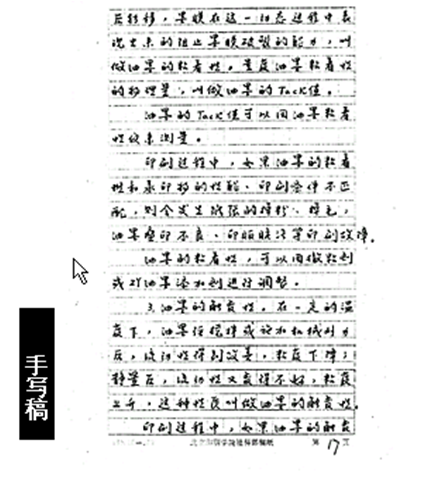 后转移,墨膜在这一动态过程中表
现出来的阻止墨膜破裂的能力,叫
做油墨的粘着性,量度油墨粘着性
的物理量,叫做油墨的Tack值。
油墨的Tack值可以用油墨粘着
性仪来测量。
印刷过程中,如果油墨的粘着
性和承印物的性能、印刷条件不匹
配,则会发生纸张的掉粉、掉毛,
油墨叠印不良、印版脏污等印刷故障。
油墨的粘着性,可以用撤粘剂
或对油墨添加剂进行调整。
3.油墨的触变性,在一定的温
度下,油墨经搅拌或施加机械外力
后,流动性得到改善,粘度下降;
静置后,流动性又变得不好,粘度
上升,这种性质叫做油墨的触变性。
印刷过程中,如果油墨的触变
第 17 页
手写稿